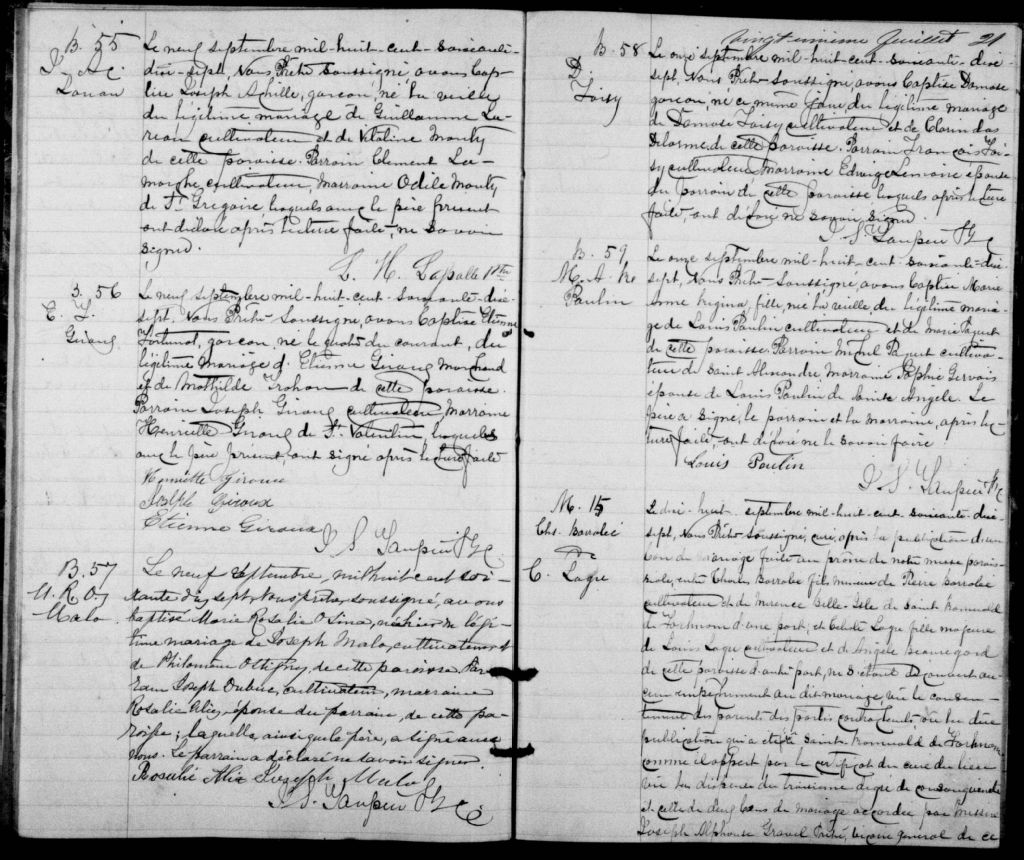 B. 55
J. A.
Lareau
Le neuf septembre mil-huit-cent-soixante-
dix-sept, Nous Prêtre soussigné avons bap-
tisé Joseph Achille, garçon, né la veille
du légitime mariage de Guillaume La-
reau cultivateur et de Vitaline Monty
de cette paroisse. Parrain Clement La-
moche, cultivateur, Marraine Odile Monty
de St Gregoire lesquels avec le père present
ont déclaré après lecture faite, ne savoir
signer.
L. H. Lasalle Ptre
B. 56
E. F.
Giroux
Le neuf septembre mil-huit-cent-soixante-dix-
sept, Nous Prêtre soussigné, avons baptisé Etienne
Fortunat, garçon, né le quatre du courant, du
légitime mariage d'Etienne Giroux Marchand
et de Mathilde Trahan de cette paroisse.
Parrain Joseph Giroux cultivateur, Marraine
Henriette Giroux de St Valentin, lesquels
avec le père present, ont signé après lecture faite
Henriette Giroux
Joseph Giroux
Etienne Giroux
B. 57
M. R. O.
Malo
Le neuf septembre, mil huit cent soi-
xante dix sept, Nous prêtre, soussigné, avons
baptisé Marie Rosalie Olina, née hier du légi-
time mariage de Joseph Malo, cultivateur et
de Philomène Ottigny, de cette paroisse. Par-
rain Joseph Dubuc, cultivateur, marraine
Rosalie Alix, épouse du parrain, de cette pa-
roisse; laquelle, ainsi que le père, a signé avec
nous. Le parrain a déclaré ne savoir signer.
Rosalie Alix Joseph Malo
vingt unieme Juillet 21
B. 58
D.
Loisy
Le onze septembre mil-huit-cent-soixante-dix-
sept, Nous Prêtre soussigné, avons baptisé Damase
garçon, né ce même jour du légitime mariage
de Damase Loisy cultivateur et de Clorinda
Delorme, de cette paroisse. Parrain François Loi-
sy cultivateur Marraine Edwige Lemoine épouse
du parrain de cette paroisse lesquels après lecture
faite, ont déclaré ne savoir signer.
B. 59
M. A. R.
Poulin
Le onze septembre mil-huit-cent-soixante-dix-
sept, Nous Prêtre soussigné, avons baptisé Marie
Anne Regina, fille, née la veille du légitime maria-
ge de Louis Poulin cultivateur et de Marie Paquet
de cette paroisse. Parrain Michel Paquet cultiva-
teur de Saint Alexandre Marraine Sophie Gervais
épouse de Louis Poulin de Sainte Angele. Le
père a signé, le parrain et la marraine, après lec-
ture faite, ont déclaré ne le savoir faire
Louis Poulin
M. 15
Chs.
&
C. Lague
Le dix-huit septembre mil-huit-cent-soixante-dix-
sept, Nous Prêtre soussigné, curé, après la publication d'un
ban de mariage faite au prône de notre messe parois-
siale, entre Charles fils mineur de Pierre
cultivateur et de Belle-Isle de Saint Romuald
de Farnham d'une part; et Lague fille majeure
de Louis Lague cultivateur et de Angele Beauregard
de cette paroisse d'autre part, ne s'étant découvert au-
cun empêchement au dit mariage, vu le consen-
tement des parents des parties contractantes vu la dite
publication qui a été faite Saint Romuald de Farnham
comme il appert par le certificat du curé du lieu
vu la dispense du troisième degré de consanguinité
et celle de deux bans de mariage accordée par Messire
Joseph Alphonse Gravel Prêtre, vicaire general de ce